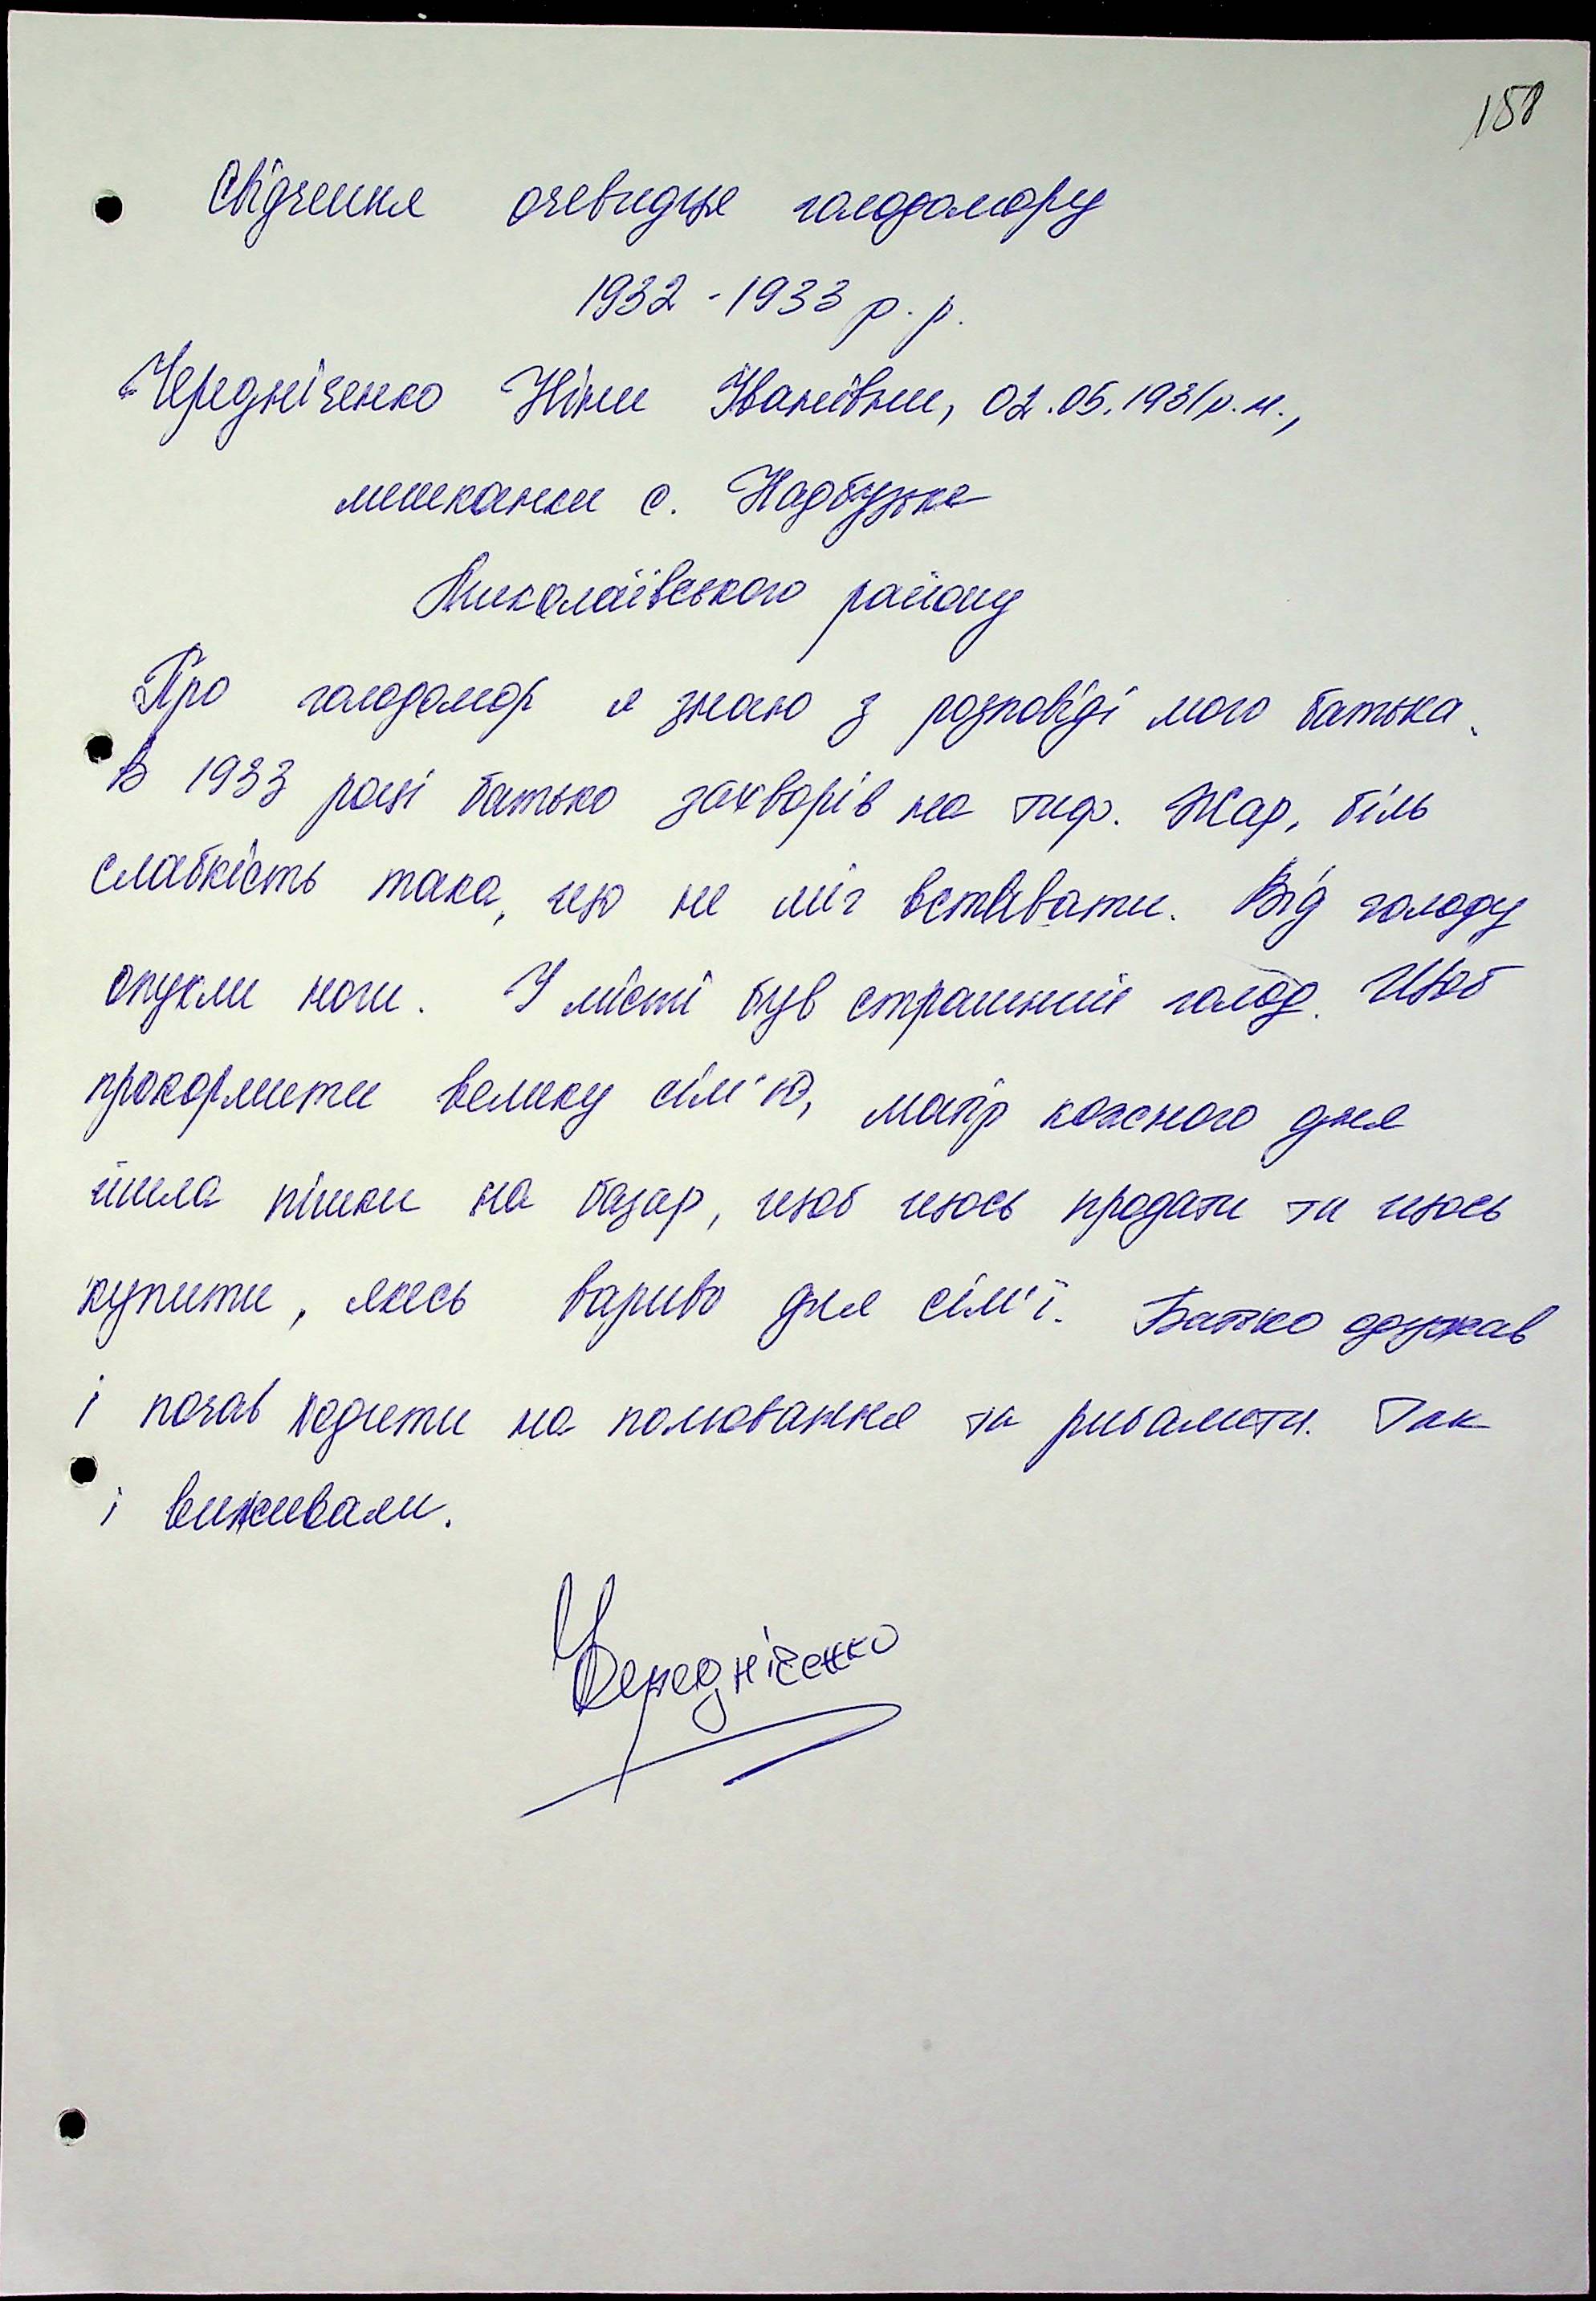 158
Свідчення очевидця голодомору
1932 - 1933 р. р.
Чередніченко Ніни Іванівни, 02.05.1931р.н.,
мешканки с. Надбузьке
Миколаївського району
Про голодомор я знаю з розповіді мого батька.
В 1933 році батько захворів на тиф. Жар, біль
слабкість така, що не міг вставати. Від голоду
опухли ноги. У місті був страшний голод. Щоб
прокормити велику сім'ю, матір кожного дня
йшла пішки на базар, щоб щось продати та щось
купити, якесь вариво для сім'ї. Батько одужав
і почав ходити на полювання та рибалити. Так
і виживали.
Чередніченко